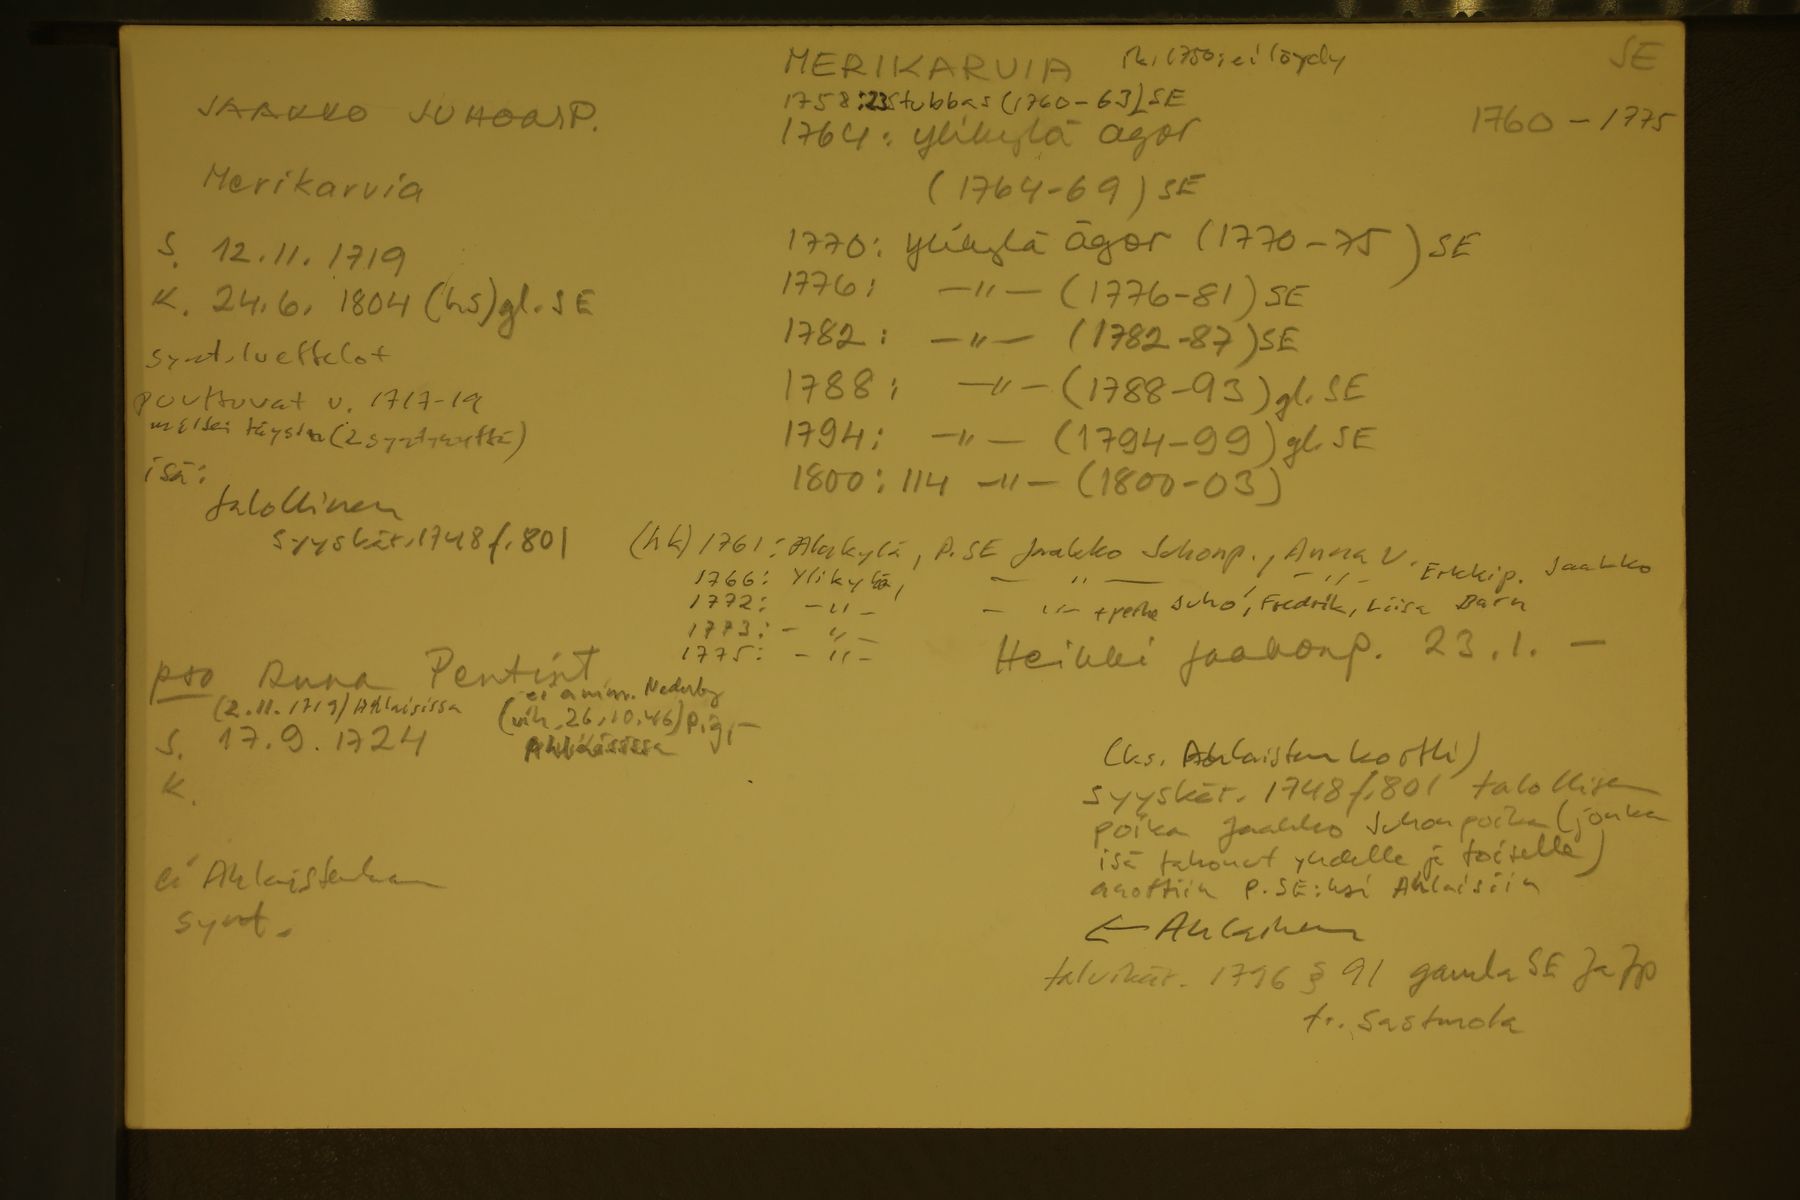 SE
MERIKARVIA rk. 1750: ei löydy
1758: 23 Stubbas (1760-63) SE
JAAKKO JUHONP.
1760-1775
1764: ylikylä ägor
(1764-69) SE
Merikarvia
S. 12.11.1719
K. 24.6. 1804 (hs) gl. SE
synt.luettelot
puuttuvat v. 1717-19
täysin (2 syntynyttä)
isä:
talollinen
syyskär. 1748 f. 801
1770: ylikylä ägor (1770-75) SE
1776: -"- (1776-81) SE
1782: -"- (1782-87) SE
1788: -"- (1788-93) gl. SE
1794: -"- (1794-99) gl. SE
1800: 114 -"- (1800-03)
(hk) 1761: Alakylä, p. SE Jaakko Juhonp., Anna v. Erkkip. Jaakko
1766: Ylikylä, -"- -"-
1772: -"- -"- + perhe Juho, Fredrik, Liisa Barn
1773: -"-
1775: -"-
Heikki Jaakonp. 23.1. -
pso Anna Pentint.
(2.11.1719) Ahlaisissa
ei amm. Nederby
(vih. 26.10.46) p.
Ahlaisissa
S. 17.9.1724
K.
ei Ahlaisten
synt.
(ks. Ahlaisten kortti)
syyskär. 1748 f. 801 talollisen
poika Jaakko Juhonpoika (jonka
isä yhdelle ja toiselle)
anottiin p. SE:ksi Ahlaisiin
← Ahlainen
talvikär. 1796 § 91 gamla SE Ja Jp
t. Sastmola